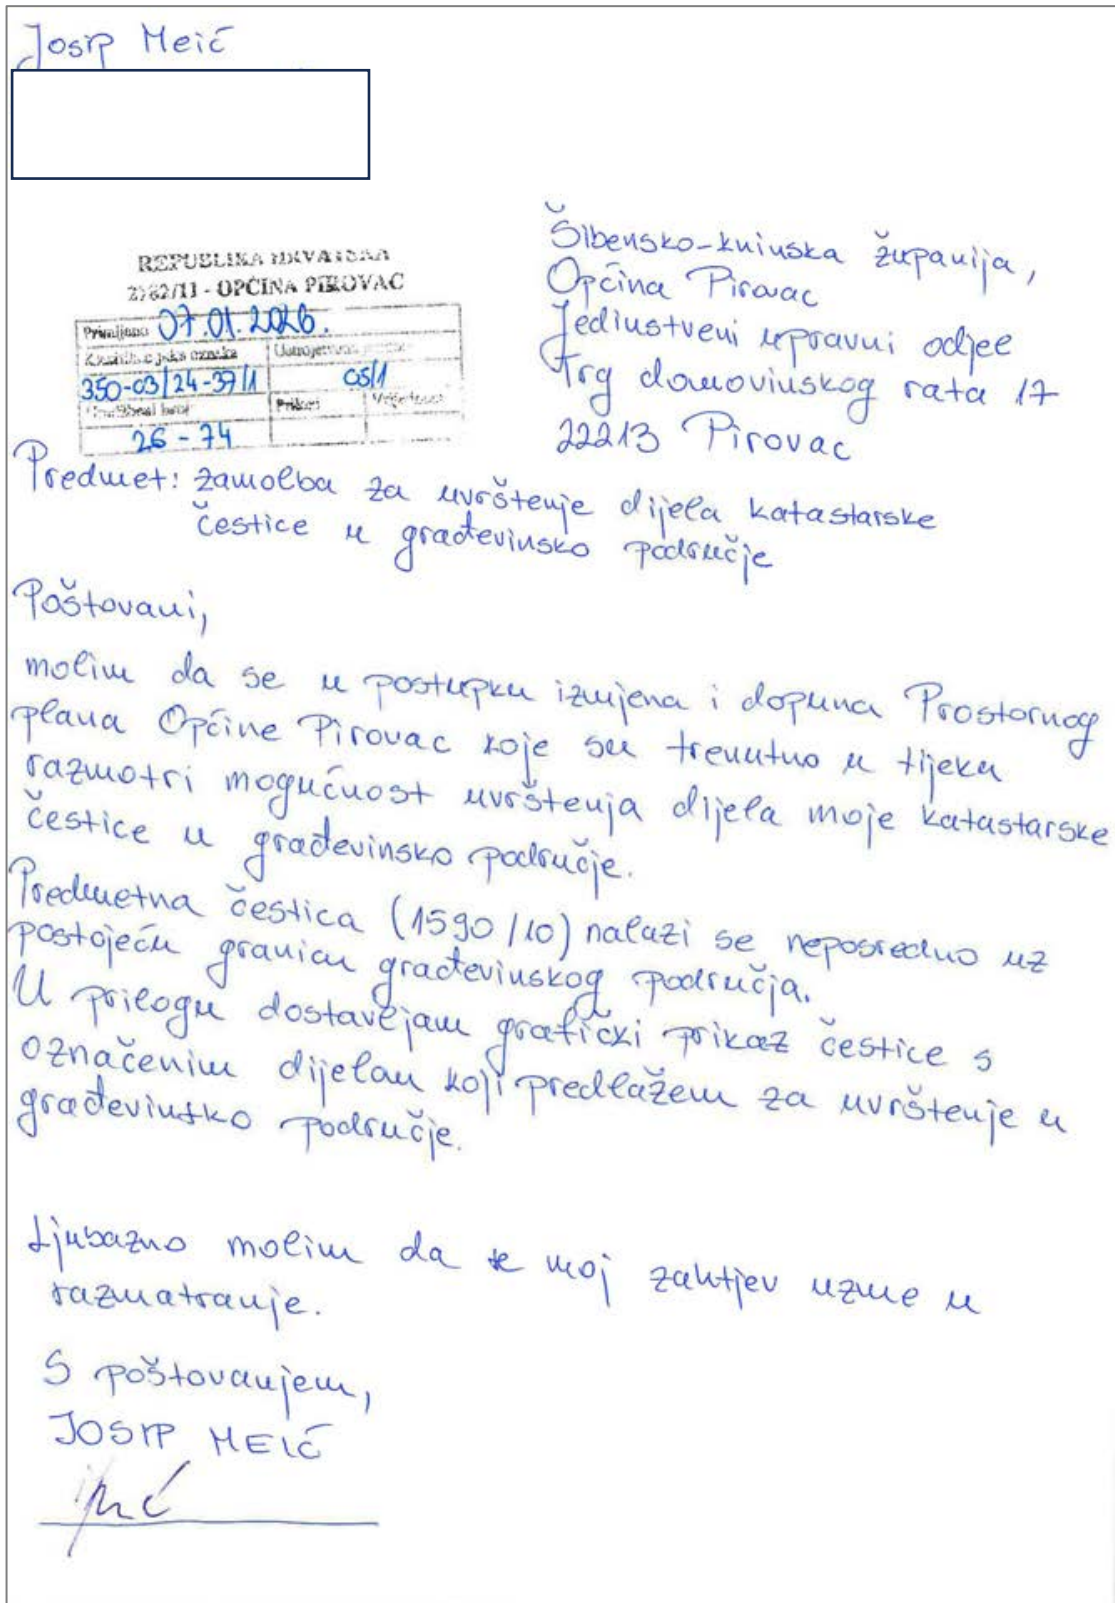 Josip Meić
REPUBLIKA HRVATSKA
2182/11 - OPĆINA PIROVAC
Primljeno 07.01.2026.
350-03/24-37/1 05/1
Prilozi
26-74
Šibensko-kninska županija,
Općina Pirovac
Jedinstveni upravni odjel
Trg domovinskog rata 17
22213 Pirovac
Predmet: zamolba za uvrštenje dijela katastarske
čestice u građevinsko područje
Poštovani,
molim da se u postupku izmjena i dopuna Prostornog
plana Općine Pirovac koje su trenutno u tijeku
razmotri mogućnost uvrštenja dijela moje katastarske
čestice u građevinsko područje.
Predmetna čestica (1590/10) nalazi se neposredno uz
postojeću granicu građevinskog područja.
U prilogu dostavljam grafički prikaz čestice s
označenim dijelom koji predlažem za uvrštenje u
građevinsko područje.
Ljubazno molim da se moj zahtjev uzme u
razmatranje.
S poštovanjem,
JOSIP MEIĆ